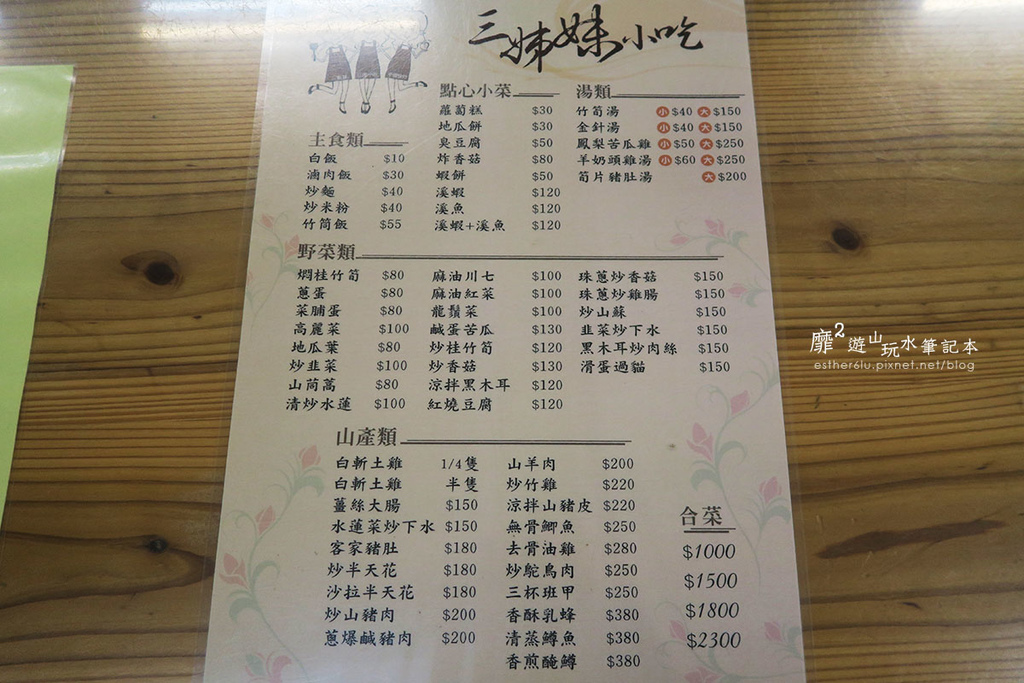 三姊妹小吃
主食類
白飯 $10
滷肉飯 $30
炒麵 $40
炒米粉 $40
竹筒飯 $55
點心小菜
蘿蔔糕 $30
地瓜餅 $30
臭豆腐 $50
炸香菇 $80
蝦餅 $50
溪蝦 $120
溪魚 $120
溪蝦+溪魚 $120
湯類
竹筍湯 小 $40 大 $150
金針湯 小 $40 大 $150
鳳梨苦瓜雞 小 $50 大 $250
羊奶頭雞湯 小 $60 大 $250
筍片豬肚湯 大 $200
野菜類
燜桂竹筍 $80
蔥蛋 $80
菜脯蛋 $80
高麗菜 $100
地瓜葉 $80
炒韭菜 $100
山茼萵 $80
清炒水蓮 $100
麻油川七 $100
麻油紅菜 $100
龍鬚菜 $100
鹹蛋苦瓜 $130
炒桂竹筍 $120
炒香菇 $130
涼拌黑木耳 $120
紅燒豆腐 $120
珠蔥炒香菇 $150
珠蔥炒雞腸 $150
炒山蘇 $150
韭菜炒下水 $150
黑木耳炒肉絲 $150
滑蛋過貓 $150
山產類
白斬土雞 1/4隻
白斬土雞 半隻
薑絲大腸 $150
水蓮菜炒下水 $150
客家豬肚 $180
炒半天花 $180
沙拉半天花 $180
炒山豬肉 $200
蔥爆鹹豬肉 $200
山羊肉 $200
炒竹雞 $220
涼拌山豬皮 $220
無骨鯽魚 $250
去骨油雞 $280
炒鴕鳥肉 $250
三杯班甲 $250
香酥乳蜂 $380
清蒸鱒魚 $380
香煎醃鱒 $380
合菜
$1000
$1500
$1800
$2300
靡2遊山玩水筆記本
esther61u.pixnet.net/blog